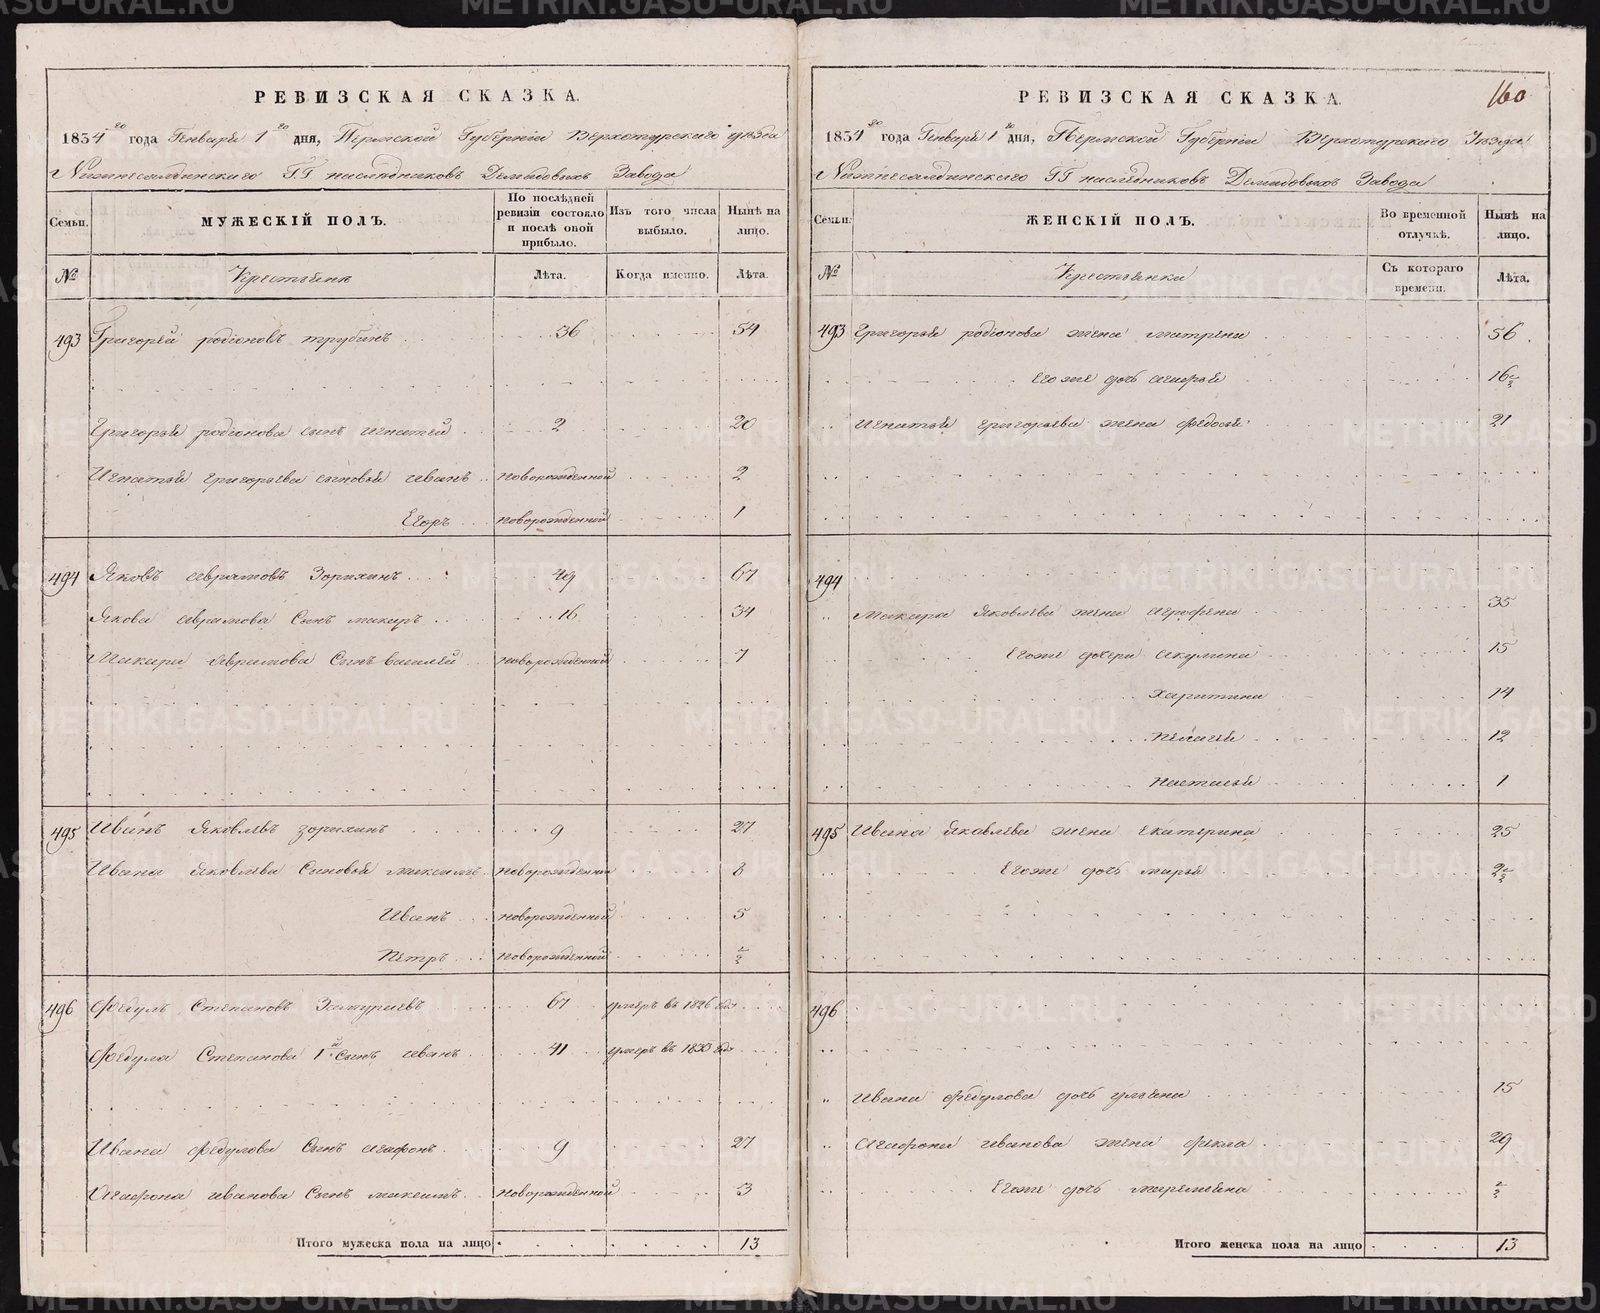 РЕВИЗСКАЯ СКАЗКА.
1834го года Генваря 1го дня, Пермской Губерніи Верхотурскаго уезда
Нижнесалдинскаго Г.Г наследниковъ Демидовыхъ Завода
Семьи. МУЖЕСКІЙ ПОЛЪ. По послѣдней ревизіи состояло и послѣ оной прибыло. Изъ того числа выбыло. Нынѣ на лицо.
№ Крестьянъ Лѣта. Когда именно. Лѣта.
493 Григорей родіоновъ трубинъ 36 54
Григорья родіонова сынъ игнатей 2 20
Игнатья григорьева сыновья иванъ новорожденной 2
Егоръ новорожденной 1
494 Яковъ аврамовъ Зорихинъ 49 67
Якова аврамова Сынъ макаръ 16 34
Макара аврамова Сынъ василей новорожденной 7
495 Иванъ яковлевъ зорихинъ 9 27
Ивана яковлева Сыновья максимъ новорожденной 8
Иванъ новорожденной 5
Петръ новорожденной 1/2
496 Федулъ Степановъ умеръ въ 1826 67
Федула Степанова 1й Сынъ иванъ 41 умеръ въ 1833
Ивана федулова Сынъ агафонъ 9 27
Агафона иванова Сынъ максимъ новорожденной 3
Итого мужеска пола на лицо 13
160
РЕВИЗСКАЯ СКАЗКА.
1834го года Генваря 1го дня, Пермской Губерніи Верхотурскаго Уезда
Нижнесалдинскаго ГГ наследниковъ Демидовыхъ Завода
Семьи. ЖЕНСКІЙ ПОЛЪ. Во временной отлучкѣ. Нынѣ на лицо.
№ Крестьянки Съ котораго времени. Лѣта.
493 Григорья родіонова жена матрена 56
Егоже дочь агафья 16 1/2
Игнатья григорьева жена федосья 21
494
" Макара яковлева жена аграфена 35
Егоже дочери акулина 15
Харитина 14
Пелагея 12
Настасья 1
495 Ивана яковлева жена екатерина 25
Егоже дочь марья 2 1/2
496
" Ивана федулова дочь ульяна 15
" Агафона иванова жена фекла 29
Егоже дочь маремьяна 1/2
Итого женска пола на лицо 13
METRIKI.GASO-URAL.RU